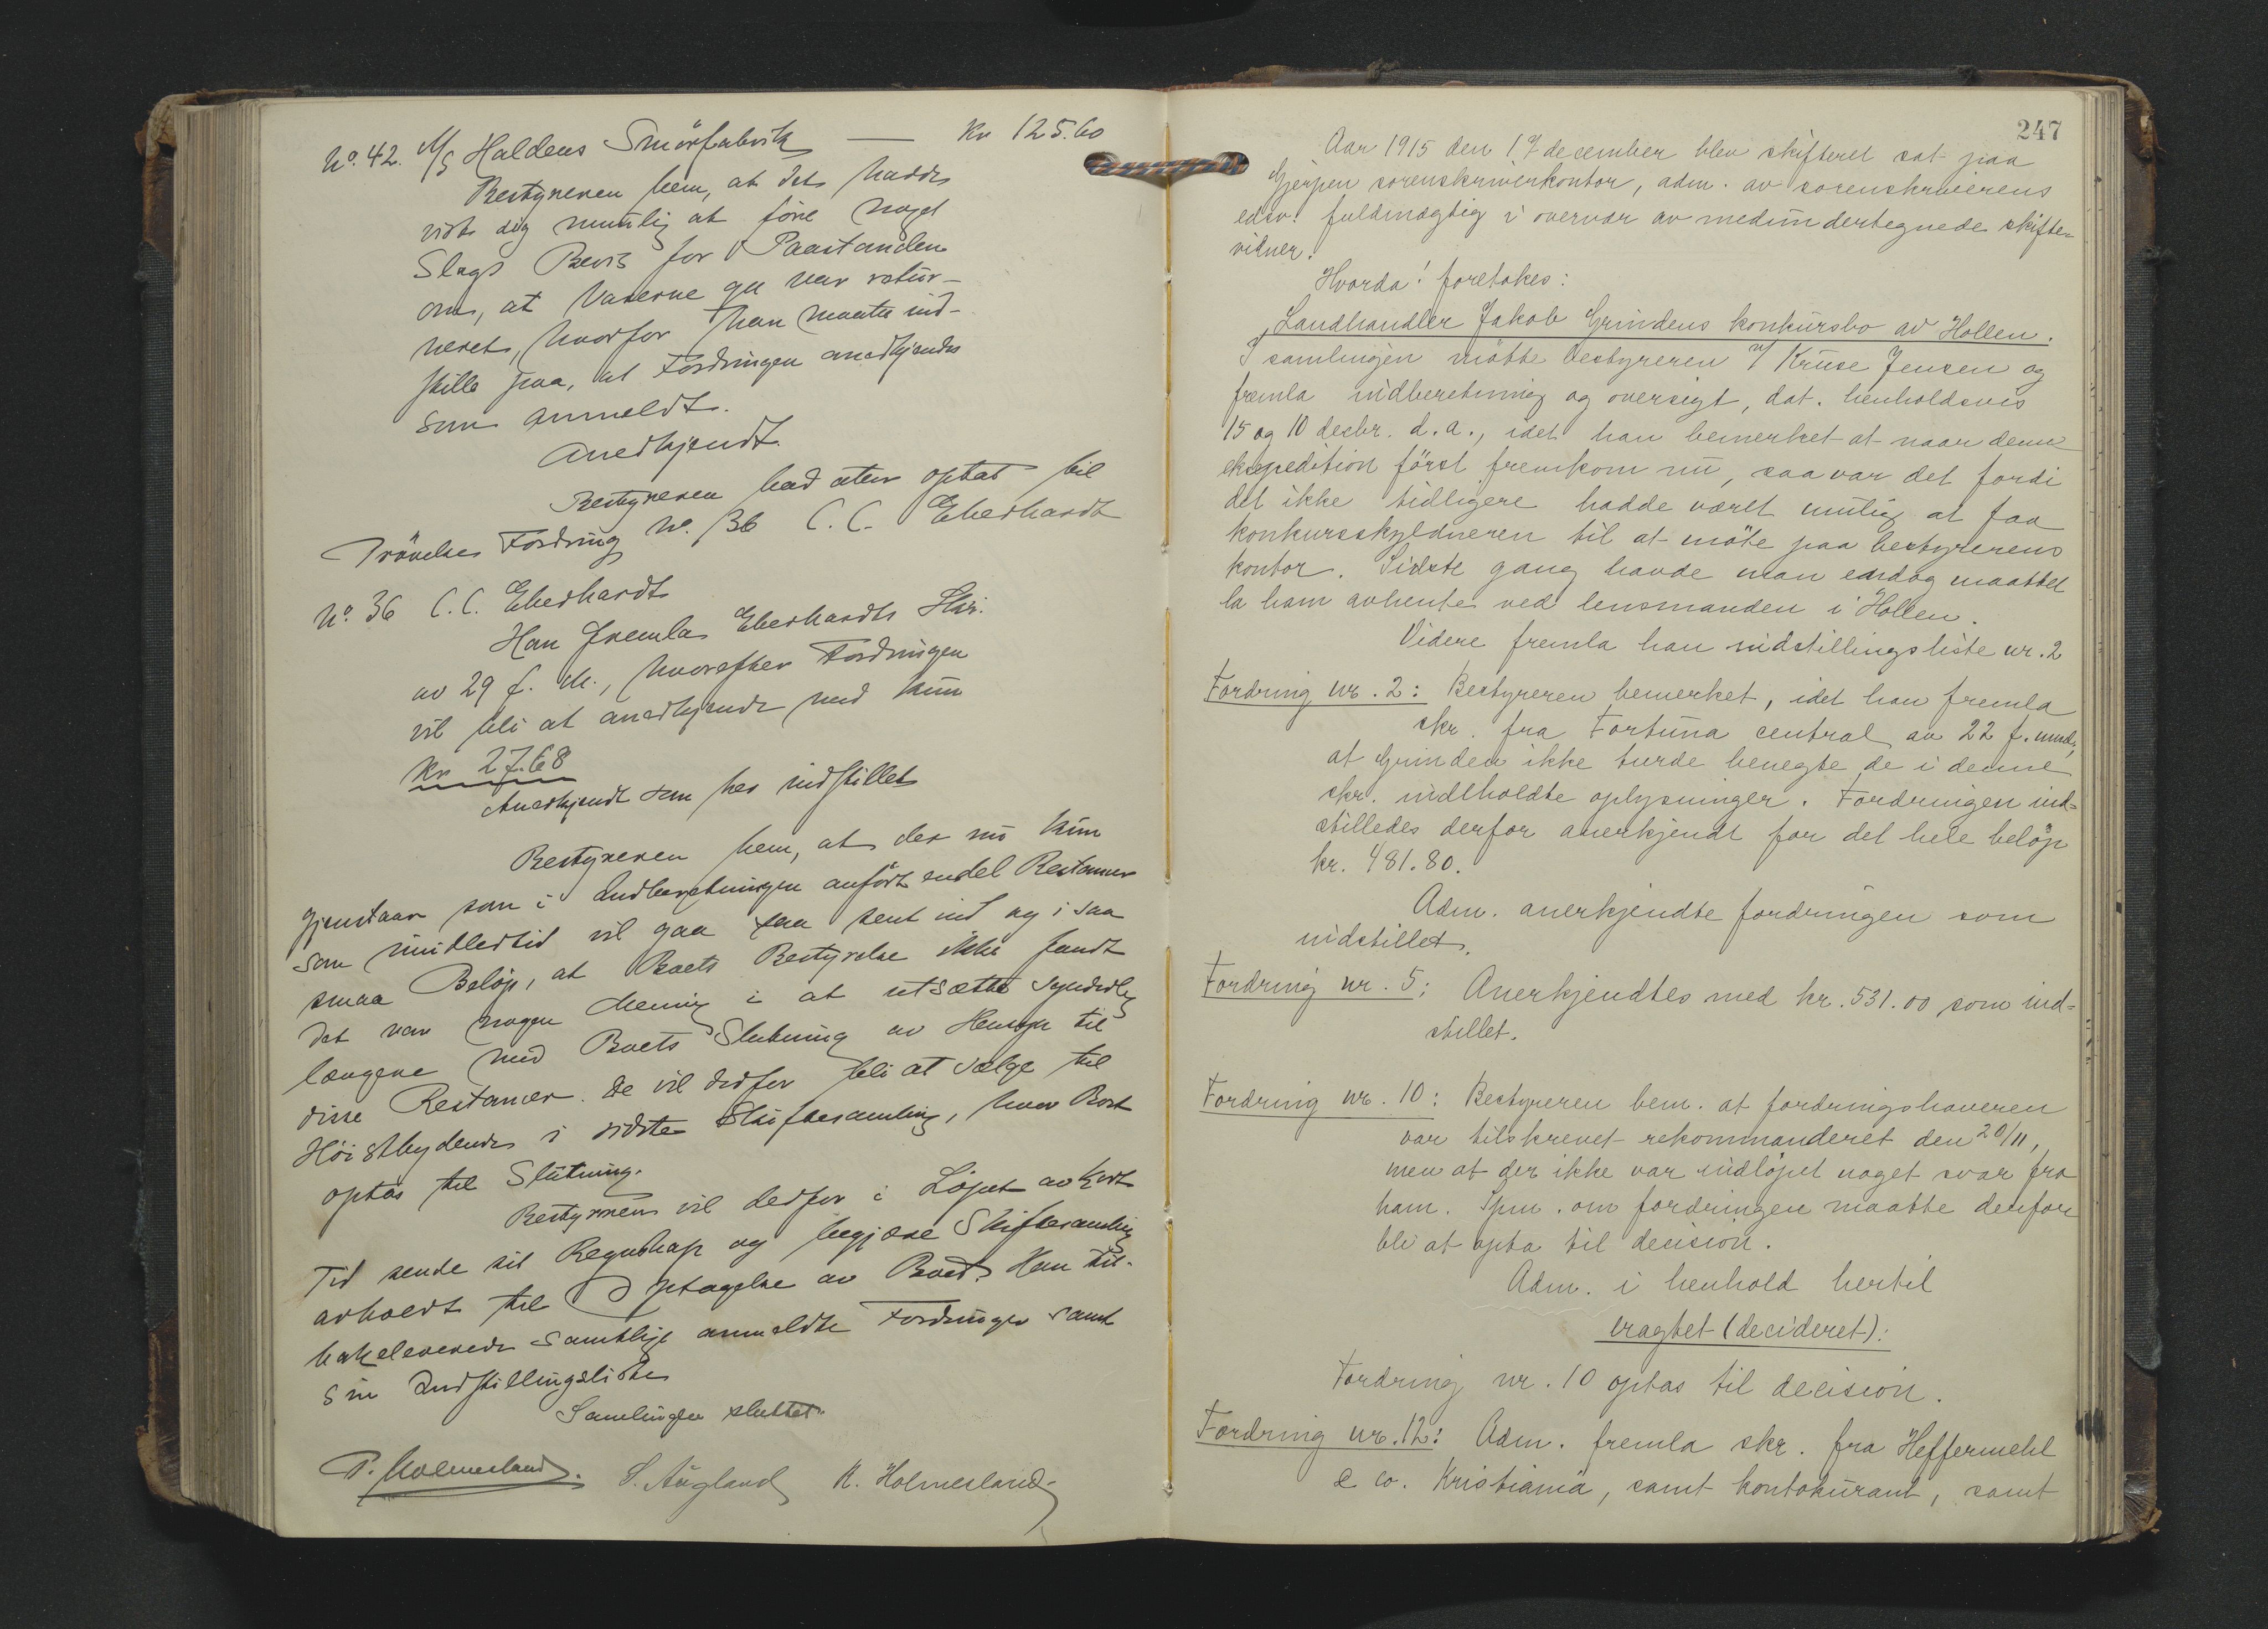 No. 42. A/S Haldens Smörfabrik — Kr 125.60
Bestyreren bem, at det hadde
vist sig umulig at före noget
Slags Bevis for Paastanden
om, at Varerne gu var retur-
neret, hvorfor han maatte ind-
stille paa, at Fordringen anerkjendes
som anmeldt.
Anerkjendt.
Bestyreren bad atter optat til
Prövelse Fordring No. 36 C. C. Eberhardt
No. 36 C. C. Eberhardt
Han fremla Eberhardts Skr.
av 29 f. M., hvorefter Fordringen
vil bli at anerkjende med kun
Kr 27.68
Anerkjendt som her indstillet
Bestyreren bem, at der nu kun
gjenstaar som i Indberetningen anfört endel Restancer
som imidlertid vil gaa saa sent ind og i saa
smaa Belöp, at Boets Bestyrelse ikke fandt
det var nogen Mening i at utsætte synderlig
længere med Boets Slutning av Hensyn til
disse Restancer. De vil derfor bli at sælge til
Höistbydende i sidste Skiftesamling, hvor Boet
optas til Slutning.
Bestyreren vil derfor i Löpet av kort
Tid sende sit Regnskap og begjære Skiftesamling
avholdt til Optagelse av Boet. Han til-
bakeleverede samtlige anmeldte Fordringer samt
sin Indstillingsliste
Samlingen sluttet.
P. Holmesland. S. Augland K. Holmesland
247
Aar 1915 den 17 december blev skifteret sat paa
Gjerpen sorenskriverkontor, adm. av sorenskriverens
edsv. fuldmægtig i overvær av medundertegnede skifte-
vidner.
Hvorda! foretokes:
Landhandler Jakob Grindens konkursbo av Hollen.
I samlingen mötte bestyreren v/ Kruse Jensen og
fremla indberetning og oversigt, dat. henholdsvis
15 og 10 decbr. d.a., idet han bemerket at naar denne
ekspedition först fremkom nu, saa var det fordi
det ikke tidligere hadde været mulig at faa
konkursskyldneren til at möte paa bestyrerens
kontor. Sidste gang havde man endog maattet
la ham avhente ved lensmanden i Hollen.
Videre fremla han indstillingsliste nr. 2
Fordring nr. 2: Bestyreren bemerket, idet han fremla
skr. fra Fortuna central av 22 f. mnd,
at Grinden ikke turde benegte de i denne
skr. indeholdte oplysninger. Fordringen ind-
stilledes derfor anerkjendt for det hele belöp
kr. 481.80.
Adm. anerkjendte fordringen som
indstillet.
Fordring nr. 5: Anerkjendtes med kr. 531.00 som ind-
stillet.
Fordring nr. 10: Bestyreren bem. at fordringshaveren
var tilskrevet rekommanderet den 20/11,
men at der ikke var indlöpet noget svar fra
ham. Spm. om fordringen maatte derfor
bli at opta til decision.
Adm. i henhold hertil
eragtet (decideret):
Fordring nr. 10 optas til decision.
Fordring nr. 12: Adm. fremla skr. fra Heffermehl
& co. Kristiania, samt kontokurant, samt